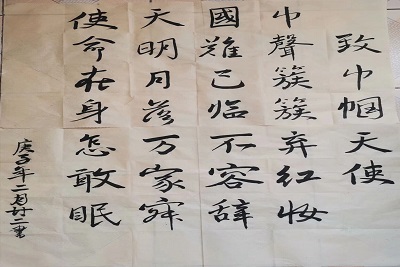 致巾帼天使
巾聲簇簇弃红妆
國難已临不容辞
天明月落万家寐
使命在身怎敢眠
庚子年二月廿二書